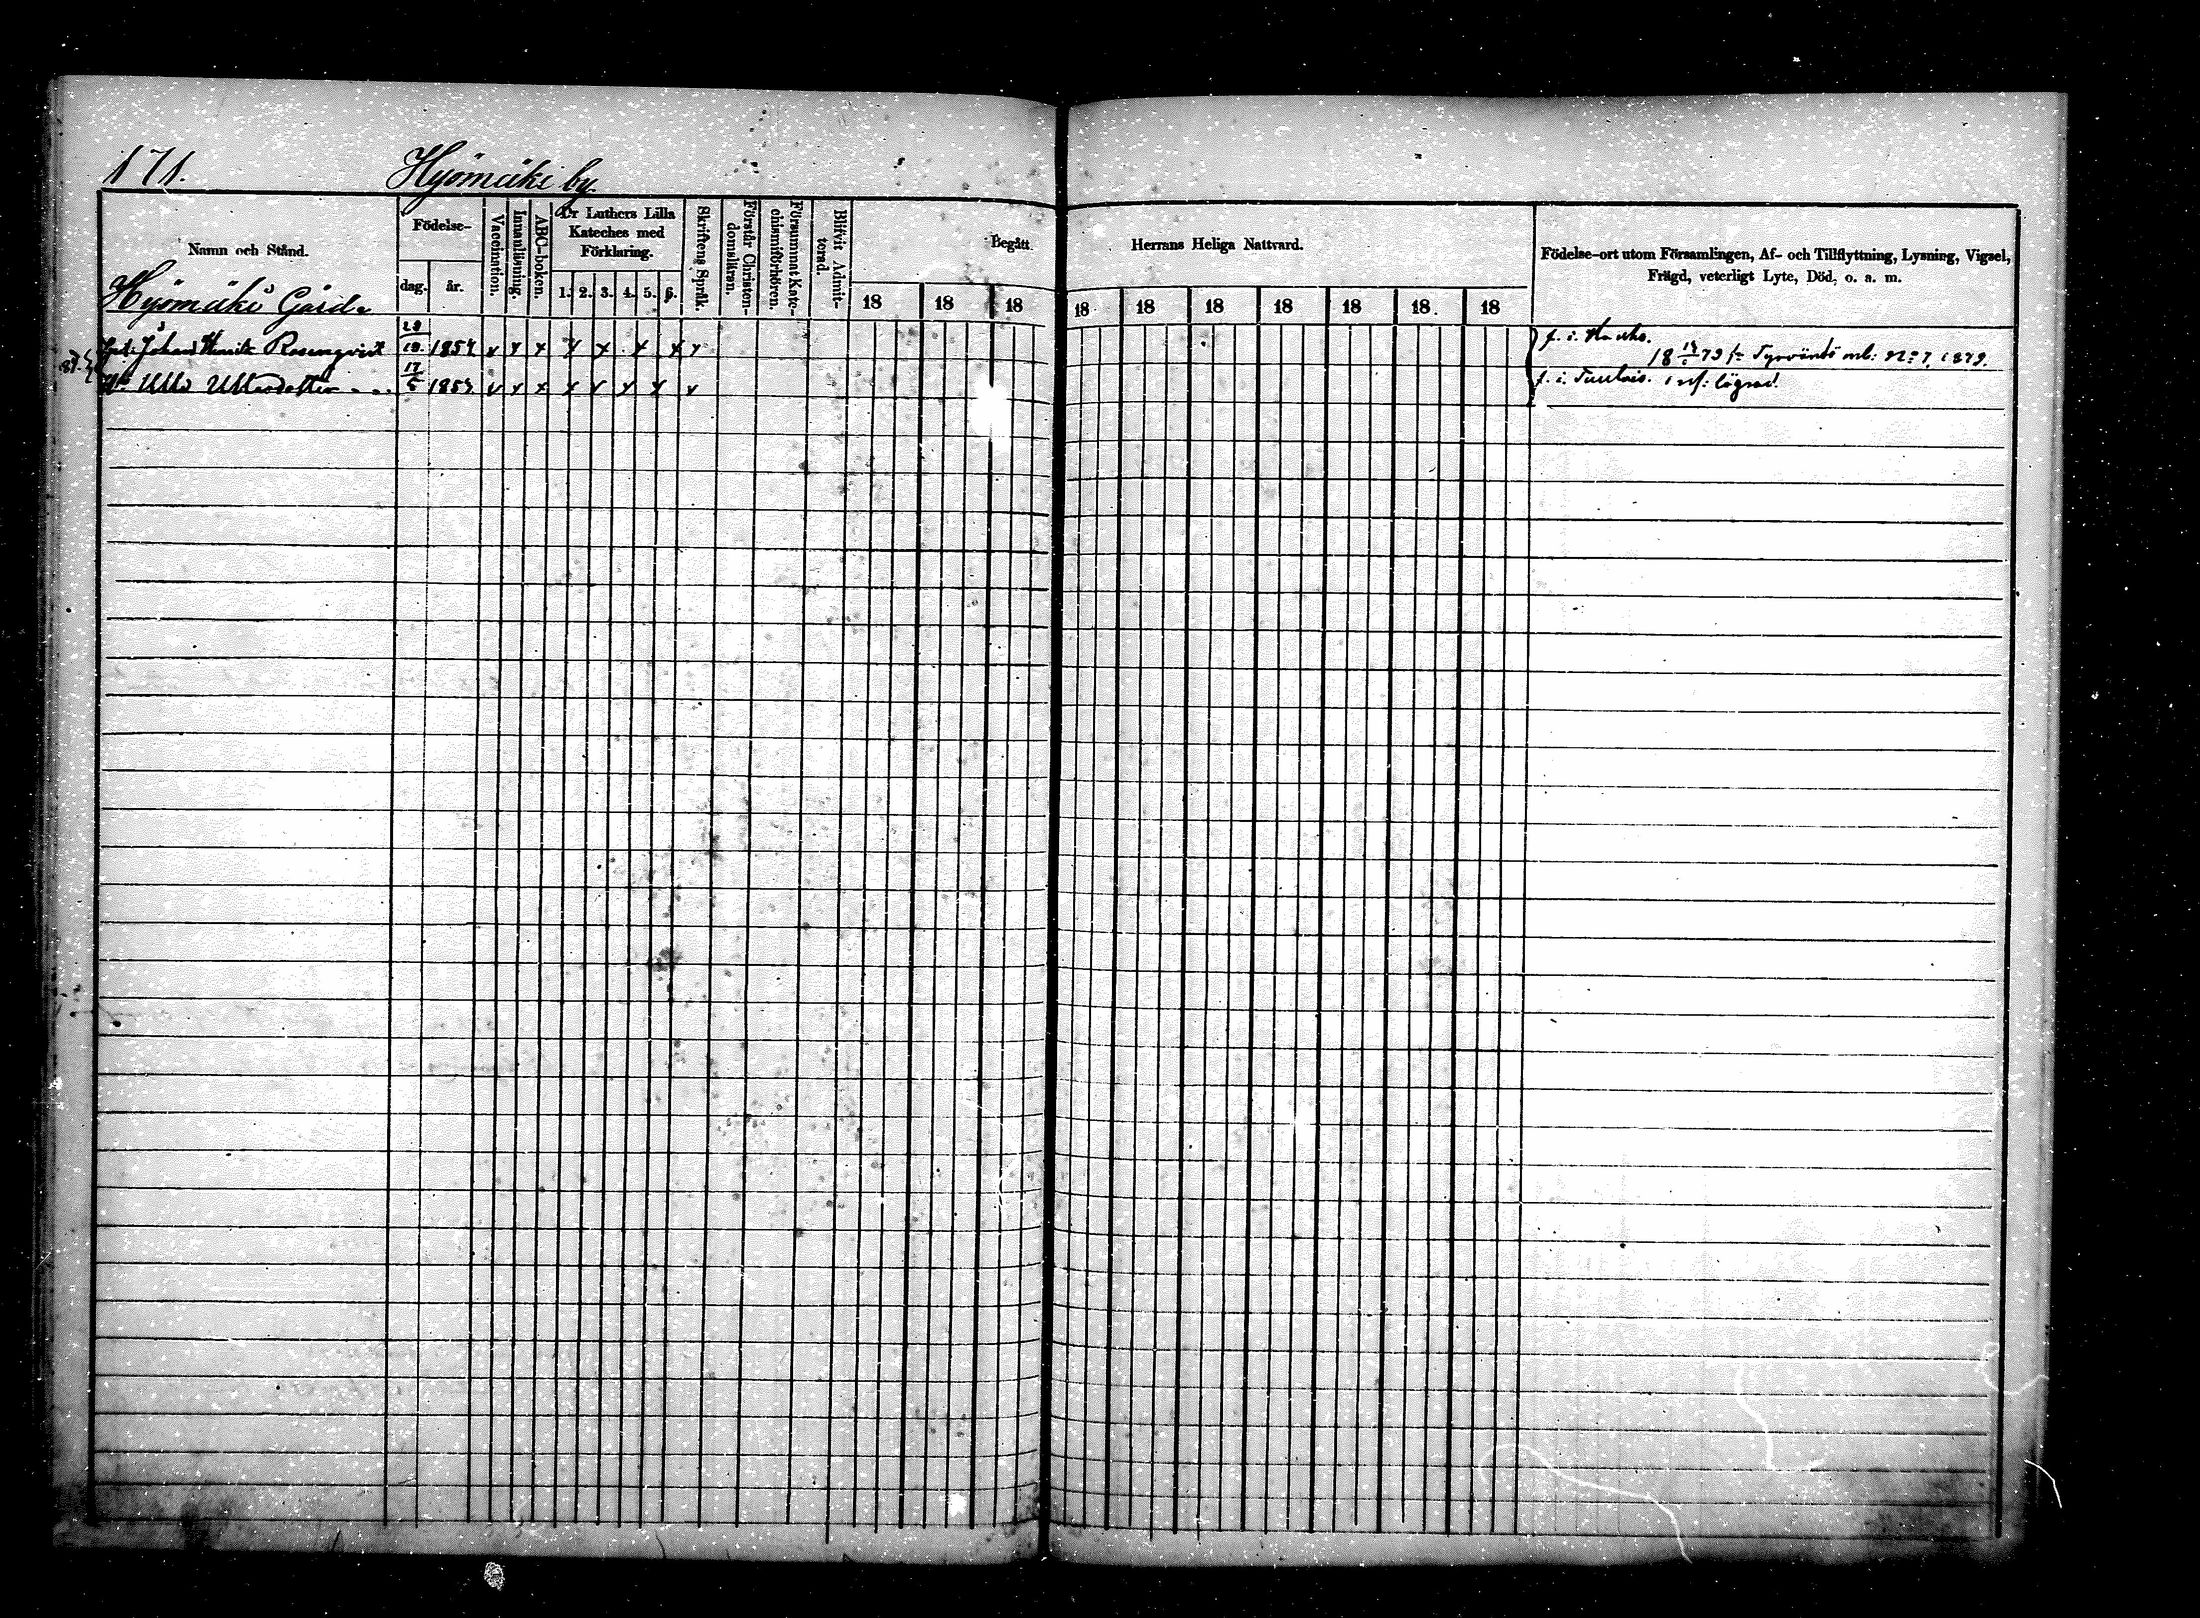 171. Hyömäki by
Namn och Stånd.
Födelse-
dag. år.
Vaccination.
Innanläsning.
ABC-boken.
Dr Luthers Lilla
Kateches med
Förklaring.
1. 2. 3. 4. 5. 6.
Skriftens Språk.
Förstår Christen-
domsläran.
Försummat Kate-
chismiförhören.
Blifvit Admit-
terad.
Begått Herrans Heliga Nattvard.
18 18 18 18 18 18 18 18 18 18
Födelse-ort utom Församlingen, Af- och Tillflyttning, Lysning, Vigsel,
Frägd, veterligt Lyte, Död, o. a. m.
Hyömäki Gård
Johan Henrik Rosenqvist 1854 x x x x x x x x f. i. Hauho.
18 79 Tyrväntö No 7, 1879.
Ulla 17/5 1857 x x x x x x x x f. i. Tuulois.